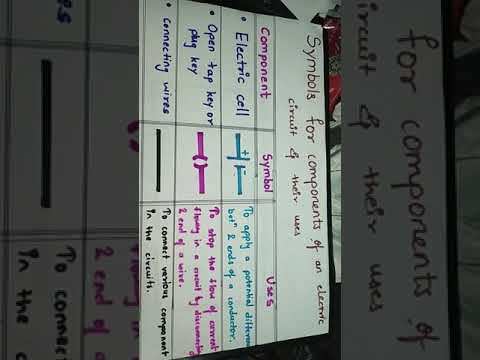 Symbols for components of an electric
circuit & their uses
Component Symbol Uses
• Electric cell
+ -
To apply a potential differen
betⁿ 2 ends of a conductor.
• Open tap key or
plug key
To stop the flow of current
flowing in a circuit by disconnectin
2 end of a wire.
• Connecting wires
To connect various component
in the circuits.
for components of
ircuit & their uses
2 end of a
To connec
in the c